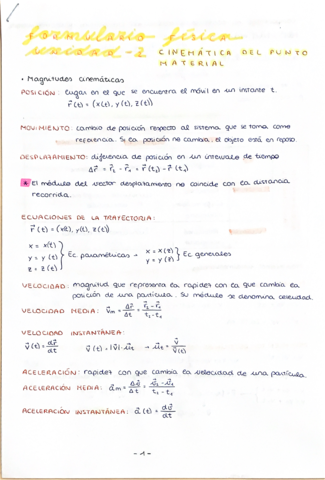 formulario física
unidad-2 CINEMÁTICA DEL PUNTO
MATERIAL
• Magnitudes cinemáticas
POSICIÓN: Lugar en el que se encuentra el móvil en un instante t.
r⃗(t) = (x(t), y(t), z(t))
MOVIMIENTO: cambio de posición respecto al sistema que se toma como
referencia. Si la posición no cambia, el objeto está en reposo.
DESPLAZAMIENTO: diferencia de posición en un intervalo de tiempo
Δr⃗ = r⃗₂ - r⃗₁ = r⃗(t₂) - r⃗(t₁)
* El módulo del vector desplazamiento no coincide con la distancia
recorrida.
ECUACIONES DE LA TRAYECTORIA:
r⃗(t) = (x(t), y(t), z(t))
x = x(t)
y = y(t) } Ec paramétricas → x = x(z) y = y(z) } Ec generales
z = z(t)
VELOCIDAD: magnitud que representa la rapidez con la que cambia la
posición de una partícula. Su módulo se denomina celeridad.
VELOCIDAD MEDIA: v⃗m = Δr⃗/Δt = r⃗₂ - r⃗₁/t₂ - t₁
VELOCIDAD INSTANTÁNEA:
v⃗(t) = dr⃗/dt v⃗(t) = |v⃗|·u⃗t → u⃗t = v⃗/v(t)
ACELERACIÓN: rapidez con que cambia la velocidad de una partícula.
ACELERACIÓN MEDIA: a⃗m = Δv⃗/Δt = v⃗₂ - v⃗₁/t₂ - t₁
ACELERACIÓN INSTANTÁNEA: a⃗(t) = dv⃗/dt
- 1 -